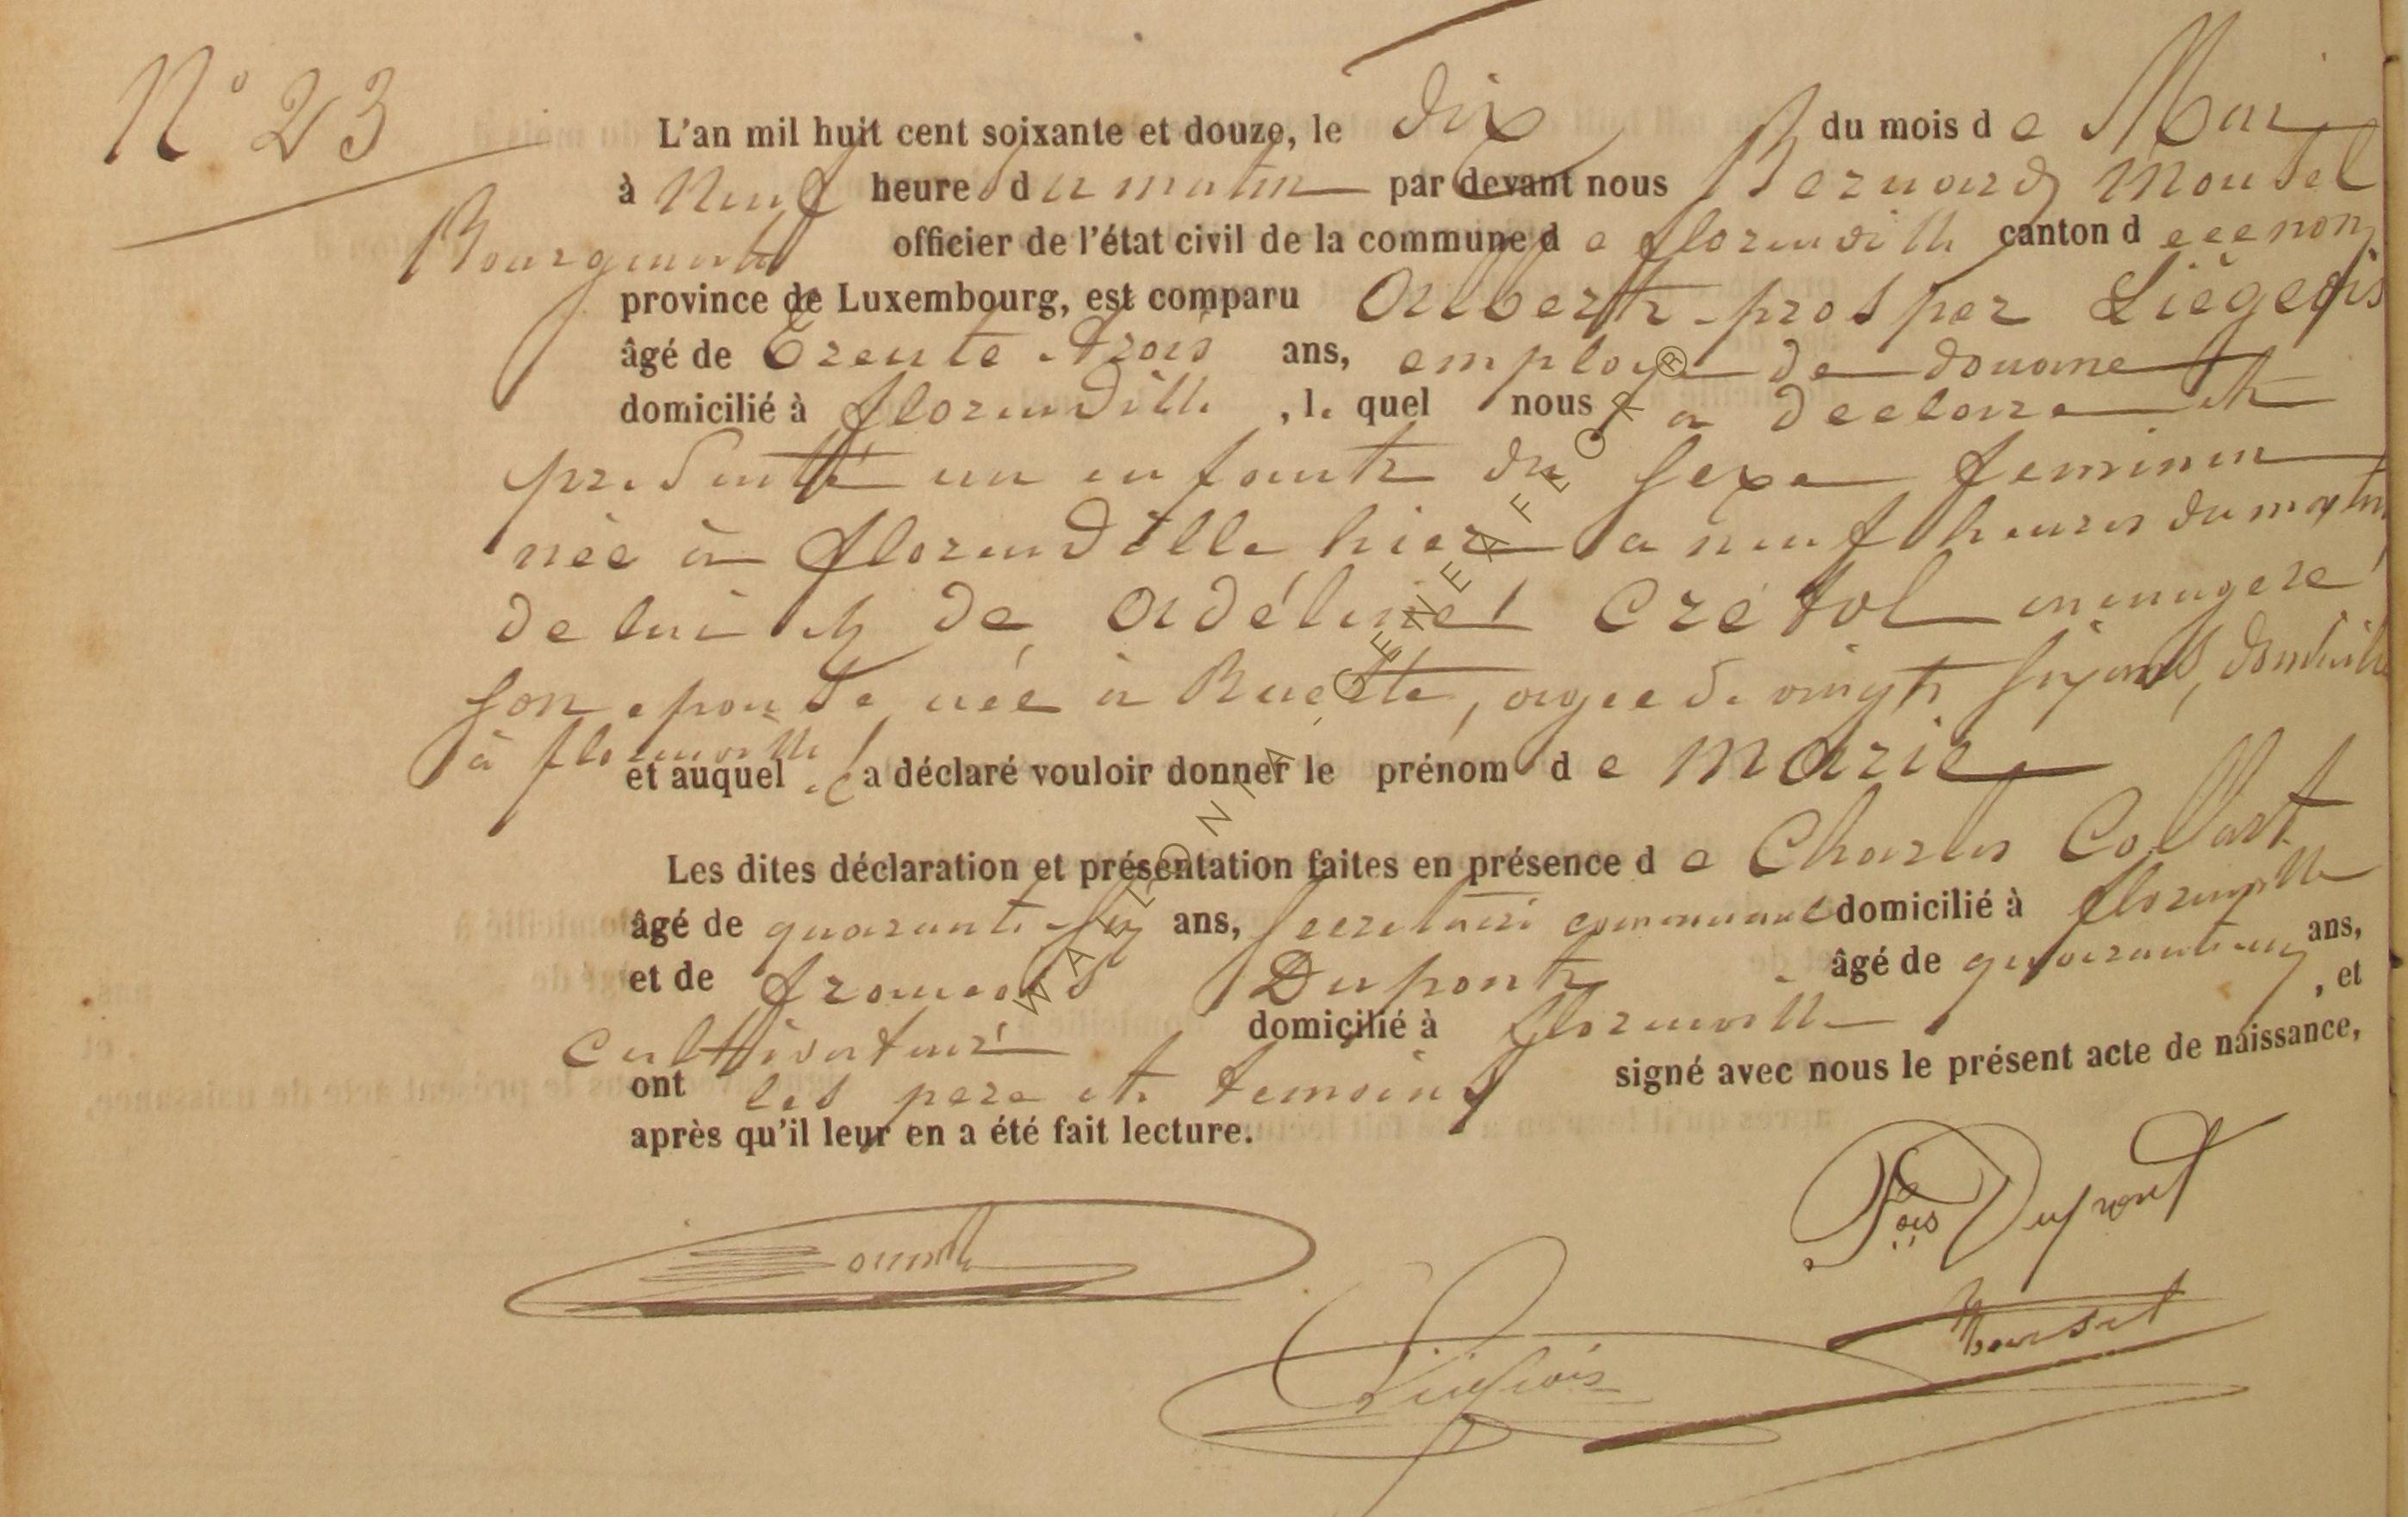 N° 23
L'an mil huit cent soixante et douze, le dix du mois de Mai
à Neuf heures du matin par devant nous Bernard Mousel
Bourgmestre officier de l'état civil de la commune de florenville canton d
province de Luxembourg, est comparu Aubert prosper Liègeois
âgé de Trente trois ans, employé de douane
domicilié à florenville, le quel nous a declaré et
presenté un enfant du sexe feminin
née à florenville hier a neuf heures du matin
de lui et de Adéline Crétol menagere
son epouse née à Ruette, agee de vingt six ans, domicilie
à florenville
et auquel il a déclaré vouloir donner le prénom de Marie
Les dites déclaration et présentation faites en présence de Charles Collart
âgé de quarante six ans, secretaire communal domicilié à florenville
et de francois Dupont âgé de quarante ans,
cultivateur domicilié à florenville, et
ont les pere et temoins signé avec nous le présent acte de naissance,
après qu'il leur en a été fait lecture.
Fçois Dupont
Mousel
Liégeois
WALLONIA GENEAFECORR ®